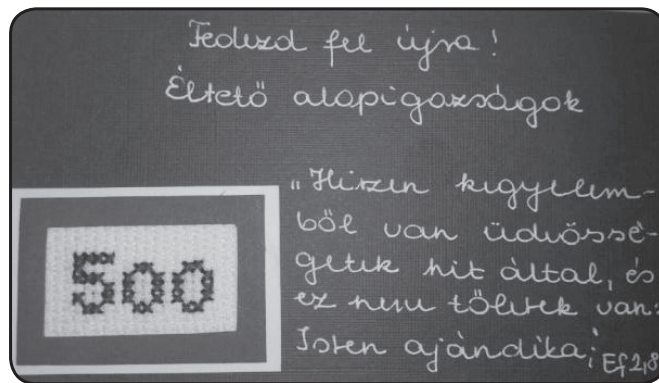 Fedezd fel újra!
Éltető alapigazságok
„Hiszen kegyelem-
ből van üdvössé-
getek hit által, és
ez nem tőletek van:
Isten ajándéka;
Ef 2,8
500